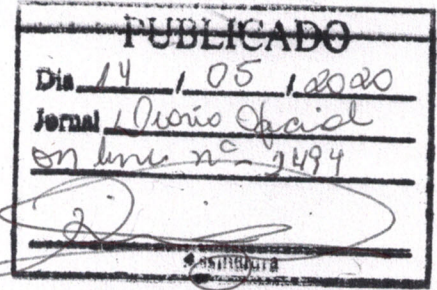 PUBLICADO
Dia 14 / 05 / 2020
Jornal Diário Oficial
on line nº - 2494
Assinatura